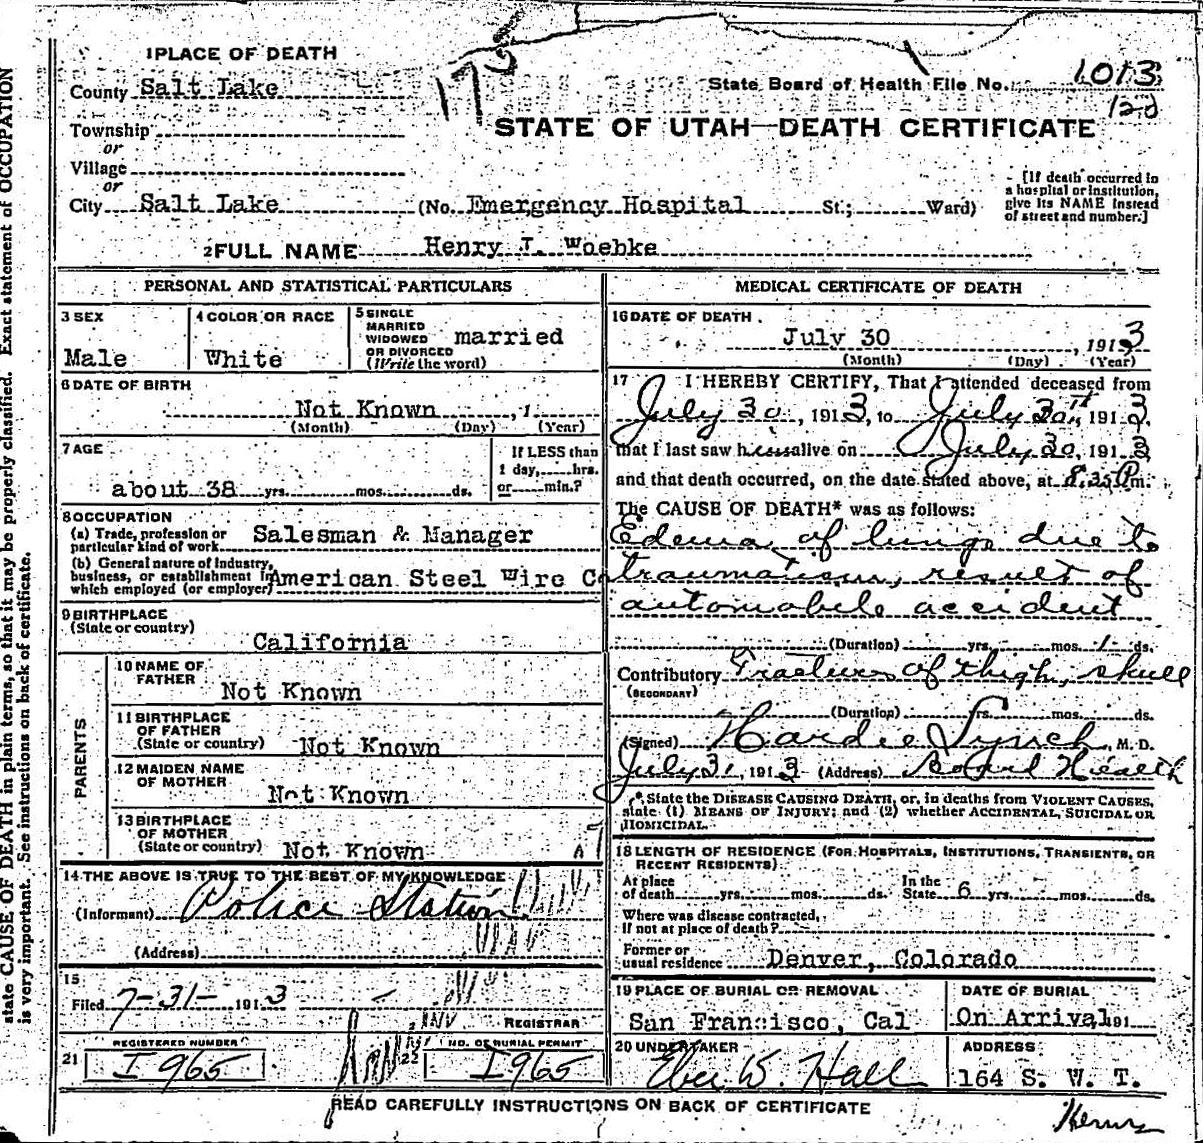 1 PLACE OF DEATH
County Salt Lake
State Board of Health File No. 1013
STATE OF UTAH—DEATH CERTIFICATE
Township
or
Village
or
City Salt Lake (No. Emergency Hospital St.; Ward)
[If death occurred in
a hospital or institution,
give its NAME instead
of street and number.]
2 FULL NAME Henry J. Woebke
PERSONAL AND STATISTICAL PARTICULARS
3 SEX
Male
4 COLOR OR RACE
White
5 SINGLE
MARRIED
WIDOWED
OR DIVORCED
(Write the word)
married
6 DATE OF BIRTH
Not Known , 1
(Month) (Day) (Year)
7 AGE
about 38 yrs. mos. ds.
If LESS than
1 day, hrs.
or min.?
8 OCCUPATION
(a) Trade, profession or
particular kind of work Salesman & Manager
(b) General nature of Industry,
business, or establishment in
which employed (or employer) American Steel Wire Co
9 BIRTHPLACE
(State or country)
California
PARENTS
10 NAME OF
FATHER
Not Known
11 BIRTHPLACE
OF FATHER
(State or country) Not Known
12 MAIDEN NAME
OF MOTHER
Not Known
13 BIRTHPLACE
OF MOTHER
(State or country) Not Known
14 THE ABOVE IS TRUE TO THE BEST OF MY KNOWLEDGE
(Informant) Police Station
(Address)
15
Filed 7-31- 1913
REGISTRAR
REGISTERED NUMBER
21 I 965
NO. OF BURIAL PERMIT
22 I 965
MEDICAL CERTIFICATE OF DEATH
16 DATE OF DEATH
July 30 , 1913
(Month) (Day) (Year)
17 I HEREBY CERTIFY, That I attended deceased from
July 30, 1913, to July 30th, 1913,
that I last saw him alive on July 30, 1913
and that death occurred, on the date stated above, at 8.35 P m.
The CAUSE OF DEATH* was as follows:
Edema of lungs due to
traumatism, result of
automobile accident
(Duration) yrs. mos. 1 ds.
Contributory Fracture of thigh, skull
(SECONDARY)
(Duration) yrs. mos. ds.
(Signed) Hardie Lynch, M. D.
July 31, 1913 (Address) Board Health
*State the DISEASE CAUSING DEATH, or, in deaths from VIOLENT CAUSES,
state (1) MEANS OF INJURY; and (2) whether ACCIDENTAL, SUICIDAL OR
HOMICIDAL.
18 LENGTH OF RESIDENCE (FOR HOSPITALS, INSTITUTIONS, TRANSIENTS, OR
RECENT RESIDENTS)
At place
of death yrs. mos. ds.
In the
State 6 yrs. mos. ds.
Where was disease contracted,
If not at place of death?
Former or
usual residence Denver, Colorado
19 PLACE OF BURIAL OR REMOVAL
San Francisco, Cal
DATE OF BURIAL
On Arrival, 191
20 UNDERTAKER
Eber W. Hall
ADDRESS
164 S. W. T.
READ CAREFULLY INSTRUCTIONS ON BACK OF CERTIFICATE
state CAUSE OF DEATH in plain terms, so that it may be properly classified. Exact statement of OCCUPATION
is very important. See instructions on back of certificate.